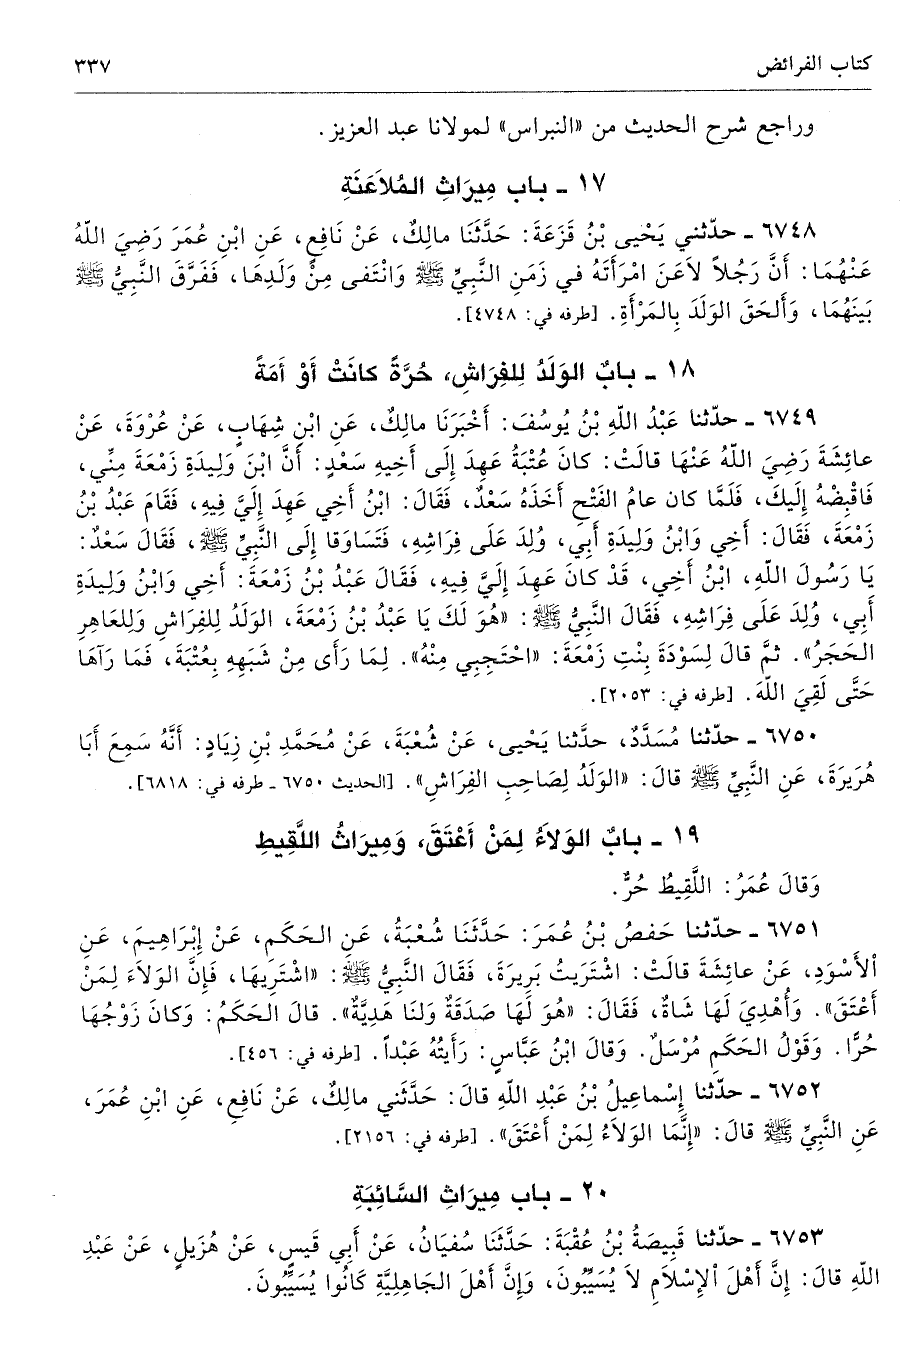 كتاب الفرائض ٣٣٧
وراجع شرح الحديث من «النبراس» لمولانا عبد العزيز.
١٧ ـ باب مِيرَاثِ المُلاَعَنَةِ
٦٧٤٨ ـ حدّثني يَحْيى بْنُ قَزَعَةَ: حَدَّثَنَا مالِكٌ، عَنْ نَافِعٍ، عَنِ ابْنِ عُمَرَ رَضِيَ اللّهُ
عَنْهُمَا: أَنَّ رَجُلاً لاَعَنَ امْرَأَتَهُ في زَمَنِ النَّبِيِّ ﷺ وَانْتَفى مِنْ وَلَدِهَا، فَفَرَّقَ النَّبِيُّ ﷺ
بَينَهُمَا، وَأَلحَقَ الوَلَدَ بِالمَرْأَةِ. [طرفه في: ٤٧٤٨].
١٨ ـ بابٌ الوَلَدُ لِلفِرَاشِ، حُرَّةً كانَتْ أَوْ أَمَةً
٦٧٤٩ ـ حدّثنا عَبْدُ اللّهِ بْنُ يُوسُفَ: أَخْبَرَنَا مالِكٌ، عَنِ ابْنِ شِهَابٍ، عَنْ عُرْوَةَ، عَنْ
عائِشَةَ رَضِيَ اللّهُ عَنْهَا قالَتْ: كانَ عُتْبَةُ عَهِدَ إِلَى أَخِيهِ سَعْدٍ: أَنَّ ابْنَ وَلِيدَةِ زَمْعَةَ مِنِّي،
فَاقْبِضْهُ إِلَيكَ، فَلَمَّا كان عامُ الفَتْحِ أَخَذَهُ سَعْدٌ، فَقَالَ: ابْنُ أَخِي عَهِدَ إِلَيَّ فِيهِ، فَقَامَ عَبْدُ بْنُ
زَمْعَةَ، فَقَالَ: أَخِي وَابْنُ وَلِيدَةِ أَبِي، وُلِدَ عَلَى فِرَاشِهِ، فَتَسَاوَقا إِلَى النَّبِيِّ ﷺ، فَقَالَ سَعْدٌ:
يَا رَسُولَ اللّهِ، ابْنُ أَخِي، قَدْ كانَ عَهِدَ إِلَيَّ فِيهِ، فَقَالَ عَبْدُ بْنُ زَمْعَةَ: أَخِي وَابْنُ وَلِيدَةِ
أَبِي، وُلِدَ عَلَى فِرَاشِهِ، فَقَالَ النَّبِيُّ ﷺ: «هُوَ لَكَ يَا عَبْدُ بْنُ زَمْعَةَ، الوَلَدُ لِلفِرَاشِ وَلِلعَاهِرِ
الحَجَرُ». ثمَّ قالَ لِسَوْدَةَ بِنْتِ زَمْعَةَ: «احْتَجِبِي مِنْهُ». لِمَا رَأَى مِنْ شَبَهِهِ بِعُتْبَةَ، فَمَا رَآهَا
حَتَّى لَقِيَ اللّهَ. [طرفه في: ٢٠٥٣].
٦٧٥٠ ـ حدّثنا مُسَدَّدٌ، حدَّثنا يَحْيى، عَنْ شُعْبَةَ، عَنْ مُحَمَّدِ بْنِ زِيَادٍ: أَنَّهُ سَمِعَ أَبَا
هُرَيرَةَ، عَنِ النَّبِيِّ ﷺ قالَ: «الوَلَدُ لِصَاحِبِ الفِرَاشِ». [الحديث ٦٧٥٠ ـ طرفه في: ٦٨١٨].
١٩ ـ بابٌ الوَلاَءُ لِمَنْ أَعْتَقَ، وَمِيرَاثُ اللَّقِيطِ
وَقالَ عُمَرُ: اللَّقِيطُ حُرٌّ.
٦٧٥١ ـ حدّثنا حَفصُ بْنُ عُمَرَ: حَدَّثَنَا شُعْبَةُ، عَنِ الحَكَمِ، عَنْ إِبْرَاهِيمَ، عَنِ
الأَسْوَدِ، عَنْ عائِشَةَ قالَتْ: اشْتَرَيتُ بَرِيرَةَ، فَقَالَ النَّبِيُّ ﷺ: «اشْتَرِيهَا، فَإِنَّ الوَلاَءَ لِمَنْ
أَعْتَقَ». وَأُهْدِيَ لَهَا شَاةٌ، فَقَالَ: «هُوَ لَهَا صَدَقَةٌ وَلنَا هَدِيَّةٌ». قالَ الحَكَمُ: وَكانَ زَوْجُهَا
حُرًّا. وَقَوْلُ الحَكَمِ مُرْسَلٌ. وَقالَ ابْنُ عَبَّاسٍ: رَأَيتُهُ عَبْداً. [طرفه في: ٤٥٦].
٦٧٥٢ ـ حدّثنا إِسْماعِيلُ بْنُ عَبْدِ اللّهِ قالَ: حَدَّثَني مالِكٌ، عَنْ نَافِعٍ، عَنِ ابْنِ عُمَرَ،
عَنِ النَّبِيِّ ﷺ قالَ: «إِنَّمَا الوَلاَءُ لِمَنْ أَعْتَقَ». [طرفه في: ٢١٥٦].
٢٠ ـ باب مِيرَاثِ السَّائِبَةِ
٦٧٥٣ ـ حدّثنا قَبِيصَةُ بْنُ عُقْبَةَ: حَدَّثَنَا سُفيَانُ، عَنْ أَبِي قَيسٍ، عَنْ هُزَيلٍ، عَنْ عَبْدِ
اللّهِ قالَ: إِنَّ أَهْلَ الإِسْلاَمِ لاَ يُسَيِّبُونَ، وَإِنَّ أَهْلَ الجَاهِلِيَّةِ كَانُوا يُسَيِّبُونَ.